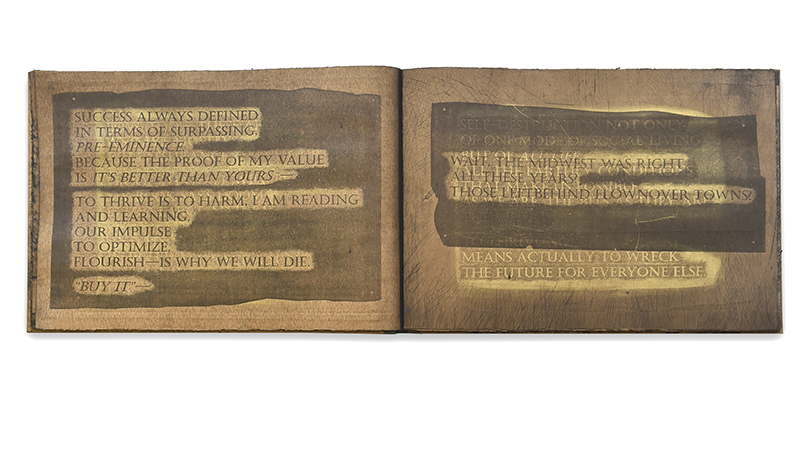 SUCCESS ALWAYS DEFINED
IN TERMS OF SURPASSING,
PRE-EMINENCE
BECAUSE THE PROOF OF MY VALUE
IS IT'S BETTER THAN YOURS —
TO THRIVE IS TO HARM. I AM READING
AND LEARNING,
OUR IMPULSE
TO OPTIMIZE,
FLOURISH—IS WHY WE WILL DIE.
"BUY IT"—
NOT ONLY
OF ONE MODE OF SOCIAL LIVING
WAIT, THE MIDWEST WAS RIGHT
ALL THESE YEARS?
THOSE LEFTBEHIND FLOWNOVER TOWNS?
MEANS ACTUALLY TO WRECK
THE FUTURE FOR EVERYONE ELSE.